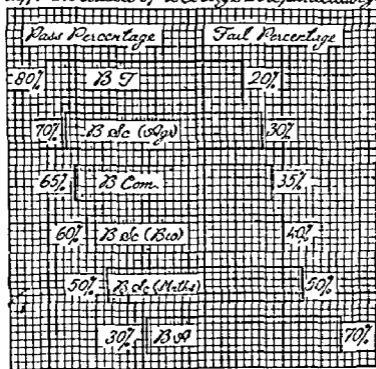 Pass Percentage Fail Percentage
80% B T 20%
70% B Sc (Agr) 30%
65% B Com. 35%
60% B Sc (Bio) 40%
50% B Sc (Maths) 50%
30% B A 70%